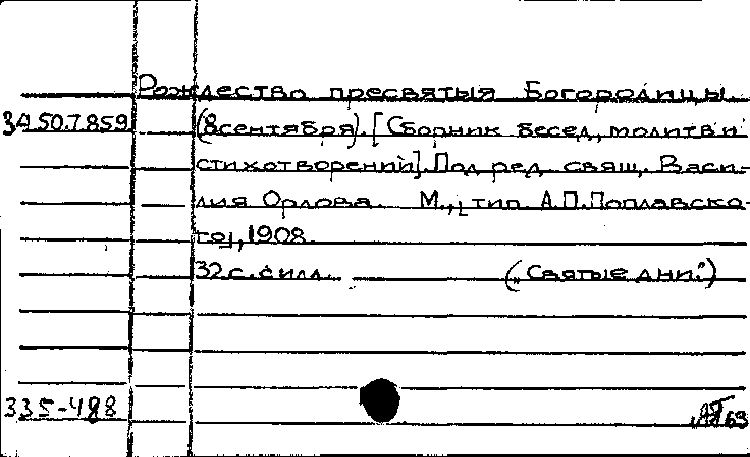 Рождество пресвятыя Богородицы.
34.50.7.859 (8 сентября). [Сборник бесед, молитв и
стихотворений]. Под ред. свящ. Васи-
лия Орлова. М., [тип. А.П. Поплавско-
го], 1908.
32 с. с илл. („Святые дни.“)
335-488 69